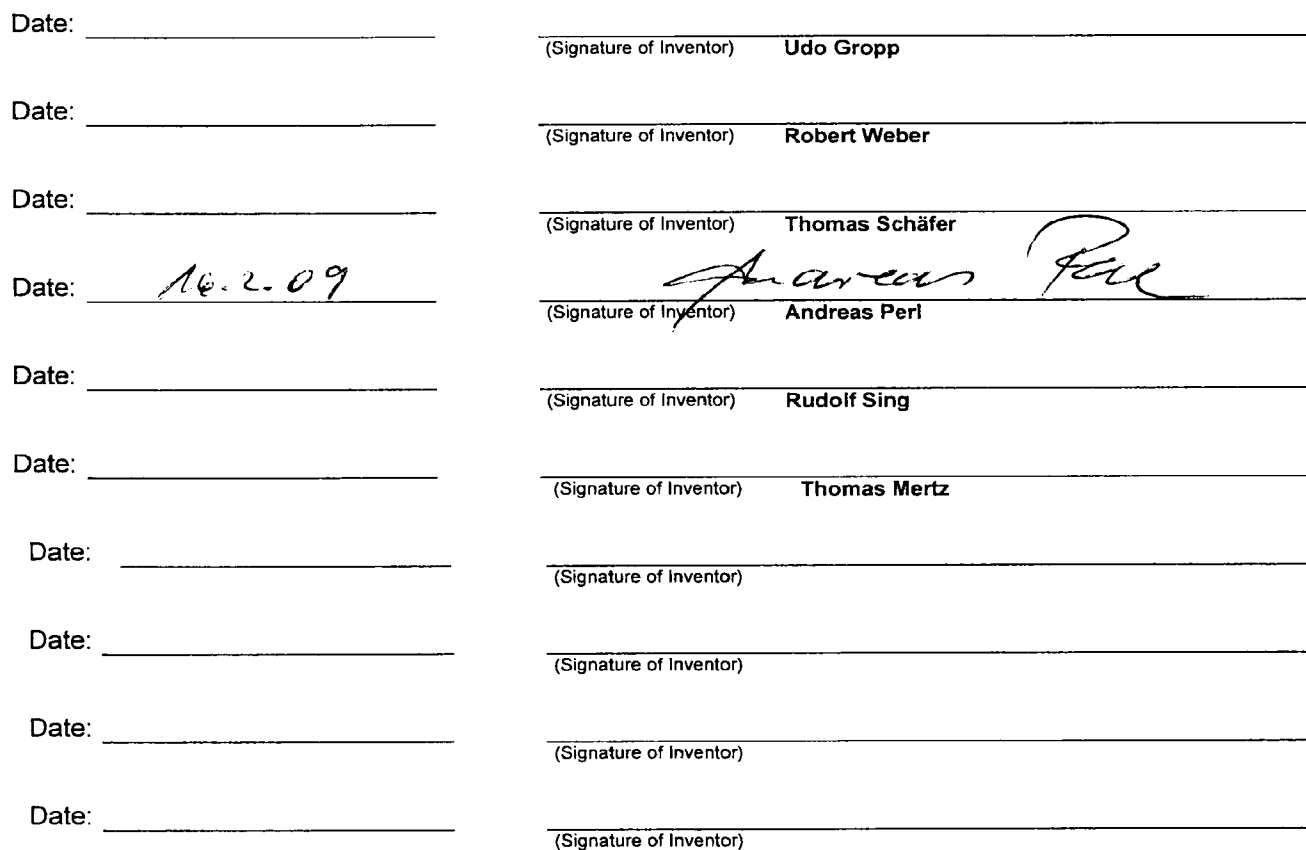 Date:
(Signature of Inventor) Udo Gropp
Date:
(Signature of Inventor) Robert Weber
Date:
(Signature of Inventor) Thomas Schäfer
Date: 16.2.09 Andreas Perl
(Signature of Inventor) Andreas Perl
Date:
(Signature of Inventor) Rudolf Sing
Date:
(Signature of Inventor) Thomas Mertz
Date:
(Signature of Inventor)
Date:
(Signature of Inventor)
Date:
(Signature of Inventor)
Date:
(Signature of Inventor)